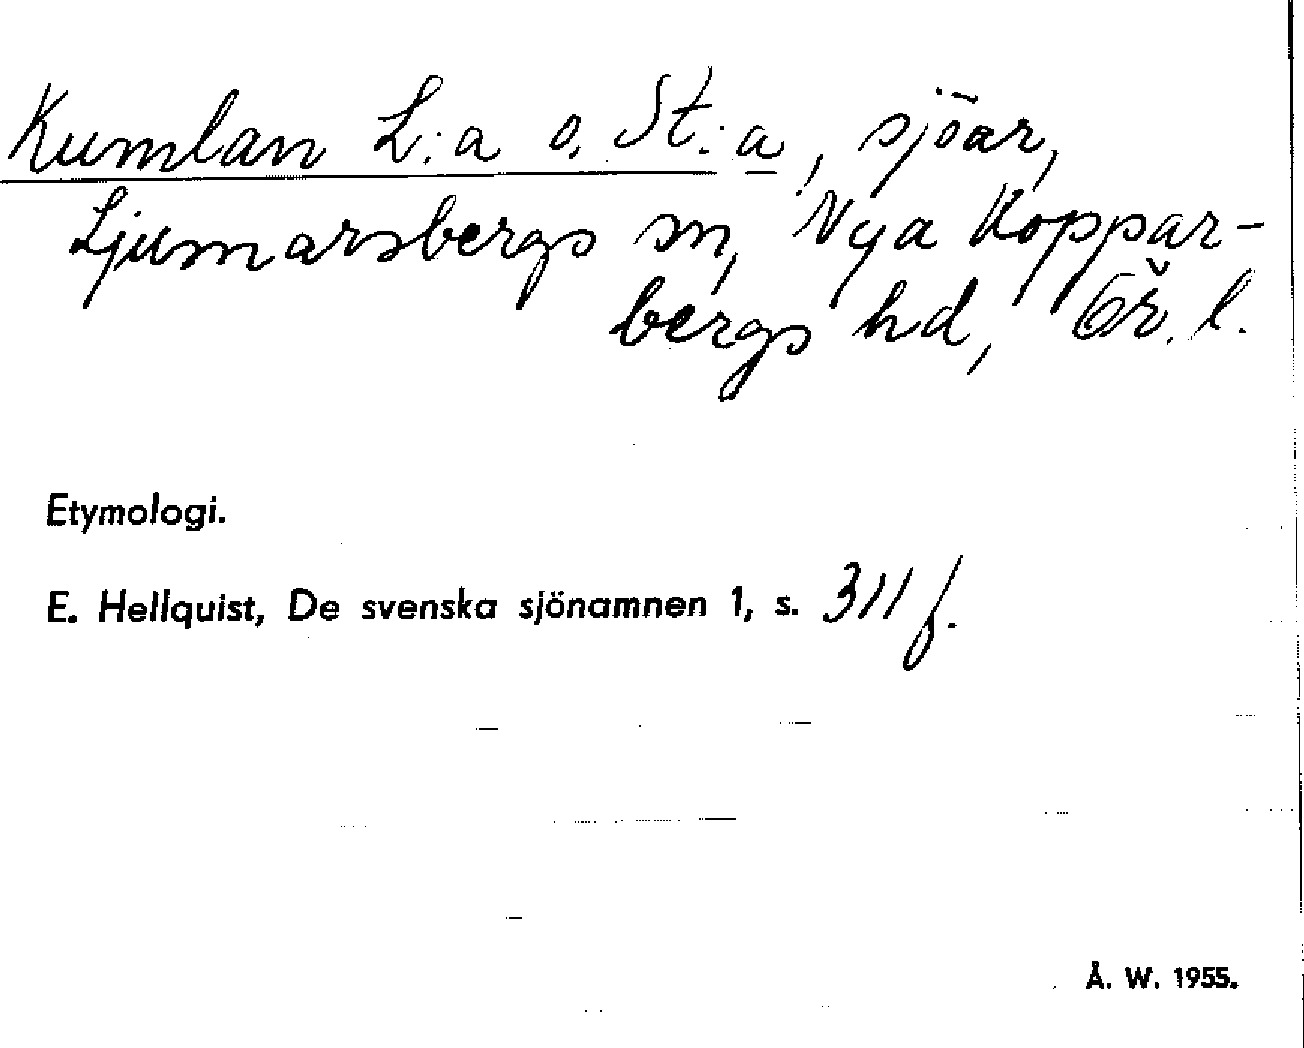 Kumlan L:a o. St:a, sjöar,
Ljusnarsbergs sn, Nya Koppar-
bergs hd, Ör. l.
Etymologi.
E. Hellquist, De svenska sjönamnen 1, s. 311 f.
Å. W. 1955.